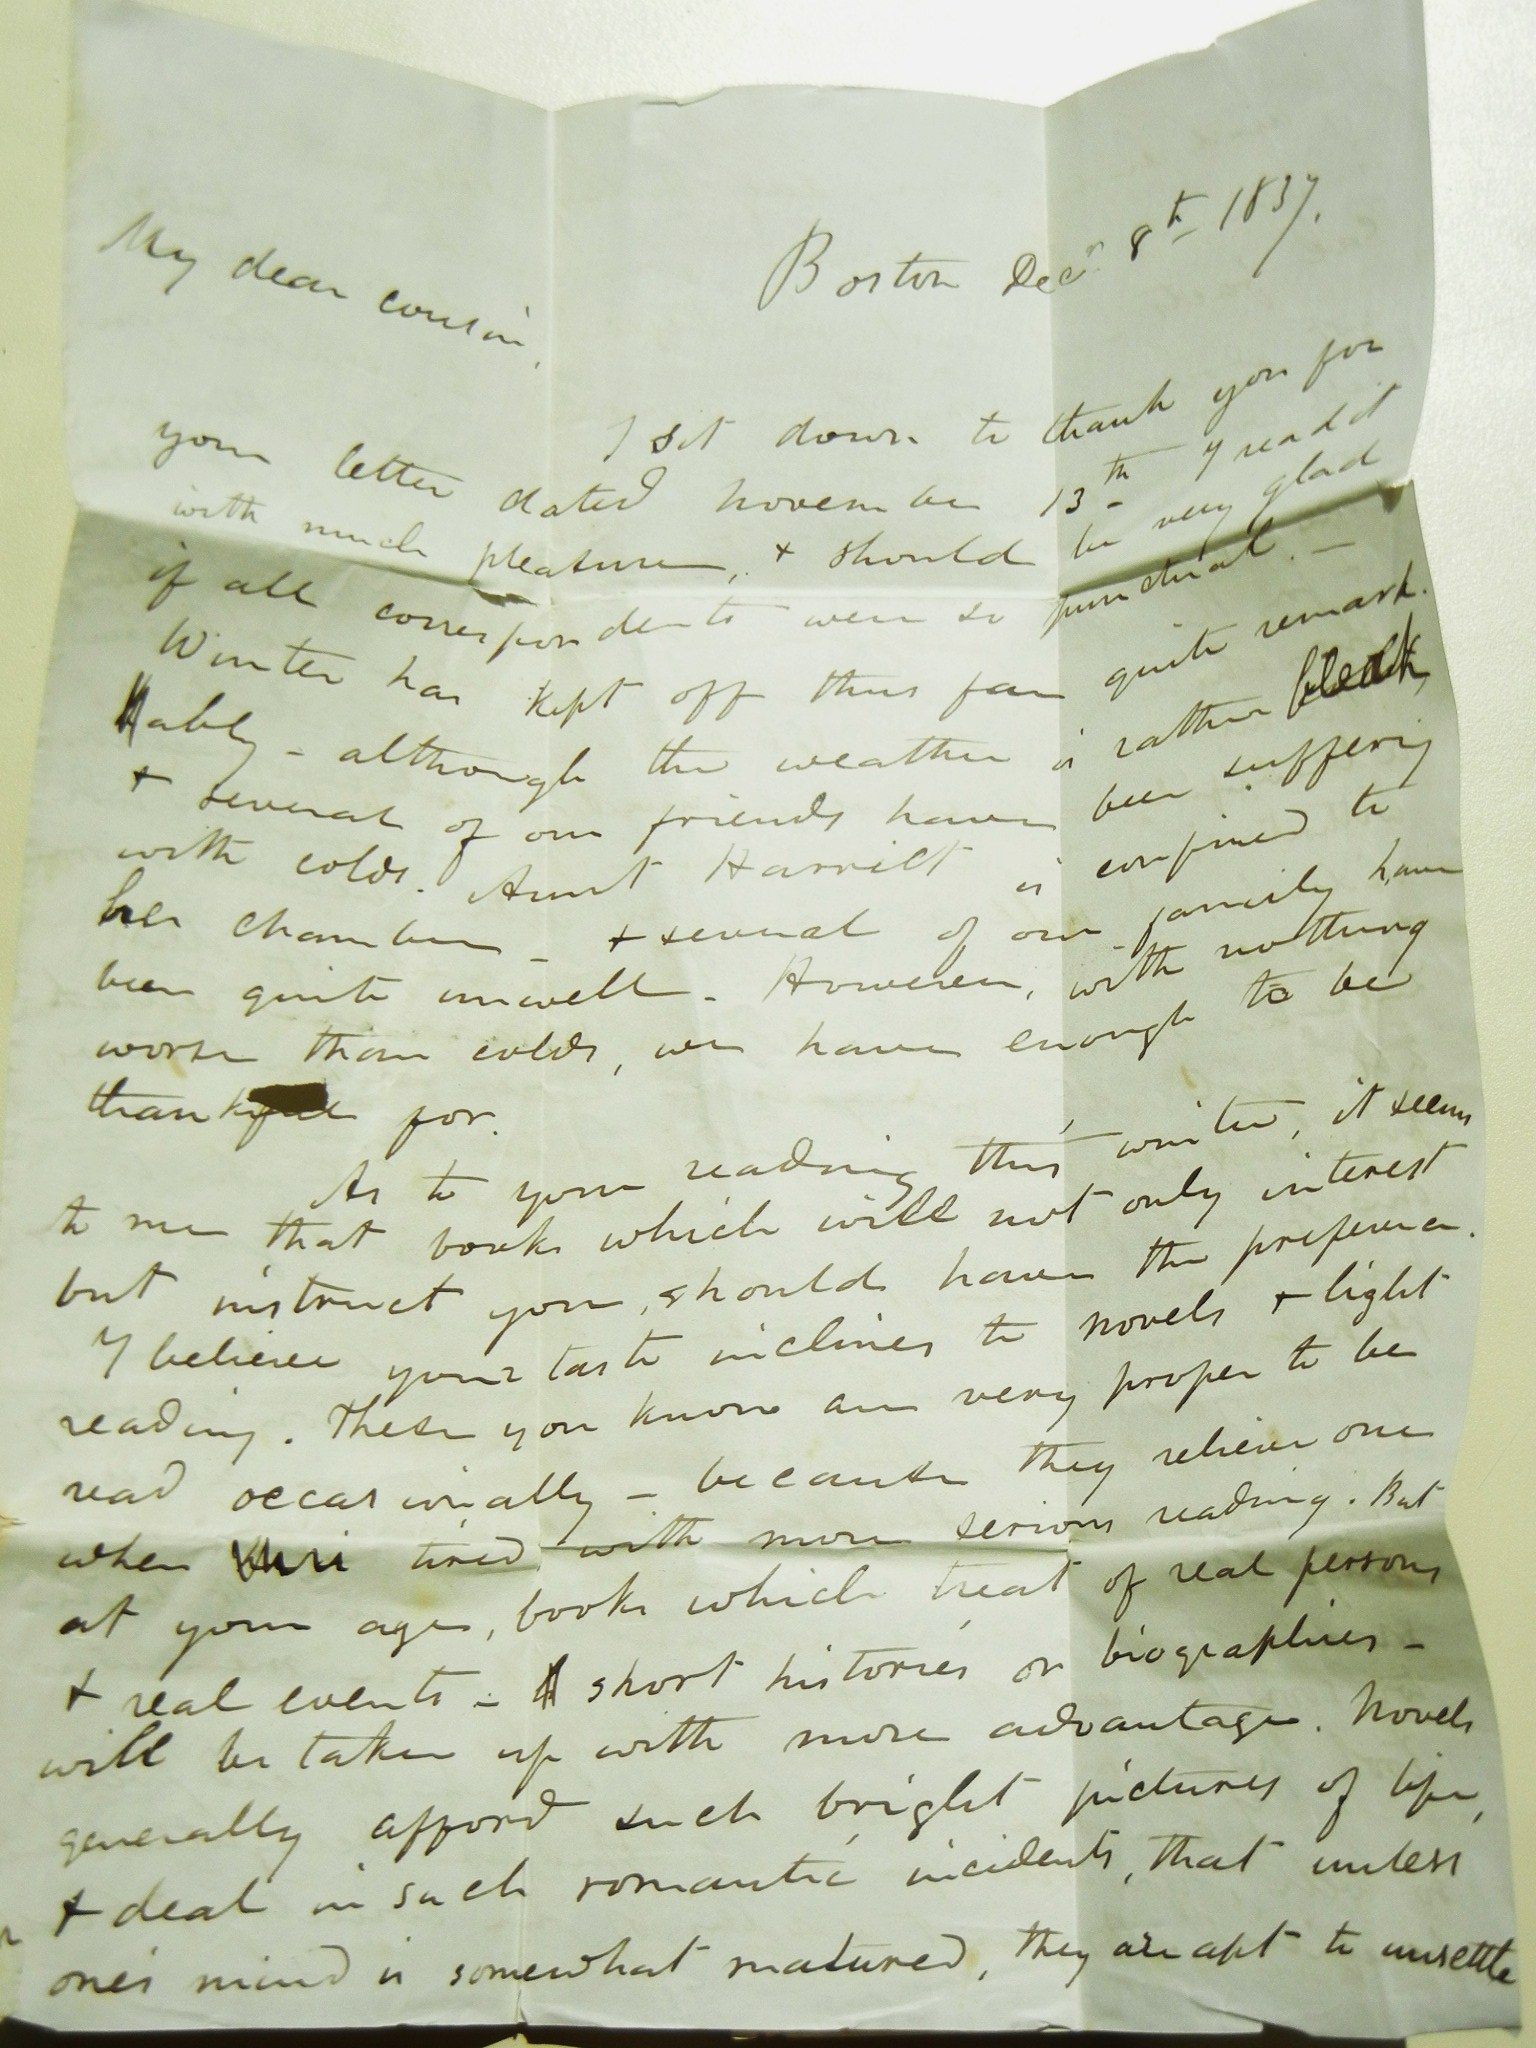 Boston Decr. 8th 1837.
My dear cousin,
I sit down to thank you for
your letter dated november 13th I read it
with much pleasure, & should be very glad
if all correspondents were so punctual. —
Winter has kept off thus far quite remark.
ably - although the weather is rather bleak,
& several of our friends have been suffering
with colds. Aunt Harriet is confined to
her chamber - & several of our family have
been quite unwell - However, with nothing
worse than colds, we have enough to be
thankful for.
As to your reading this winter, it seems
to me that books which will not only interest
but instruct you, should have the preference.
I believe your taste inclines to novels & light
reading. These you know are very proper to be
read occasionally - because they relieve one
when tired with more serious reading. But
at your age, books which treat of real persons
& real events - short histories or biographies -
will be taken up with more advantage. Novels
generally afford such bright pictures of life,
& deal in such romantic incidents, that unless
one's mind is somewhat matured, they are apt to unsettle